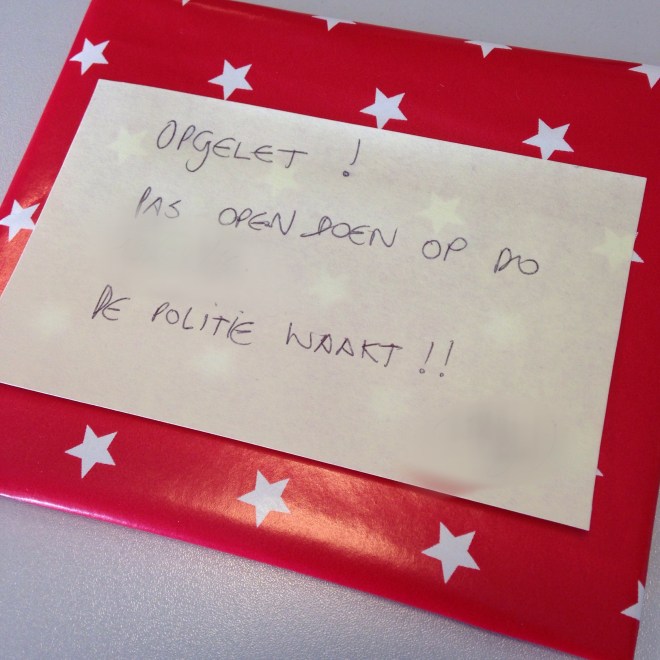 OPGELET !
PAS OPEN DOEN OP DO
DE POLITIE WAAKT !!